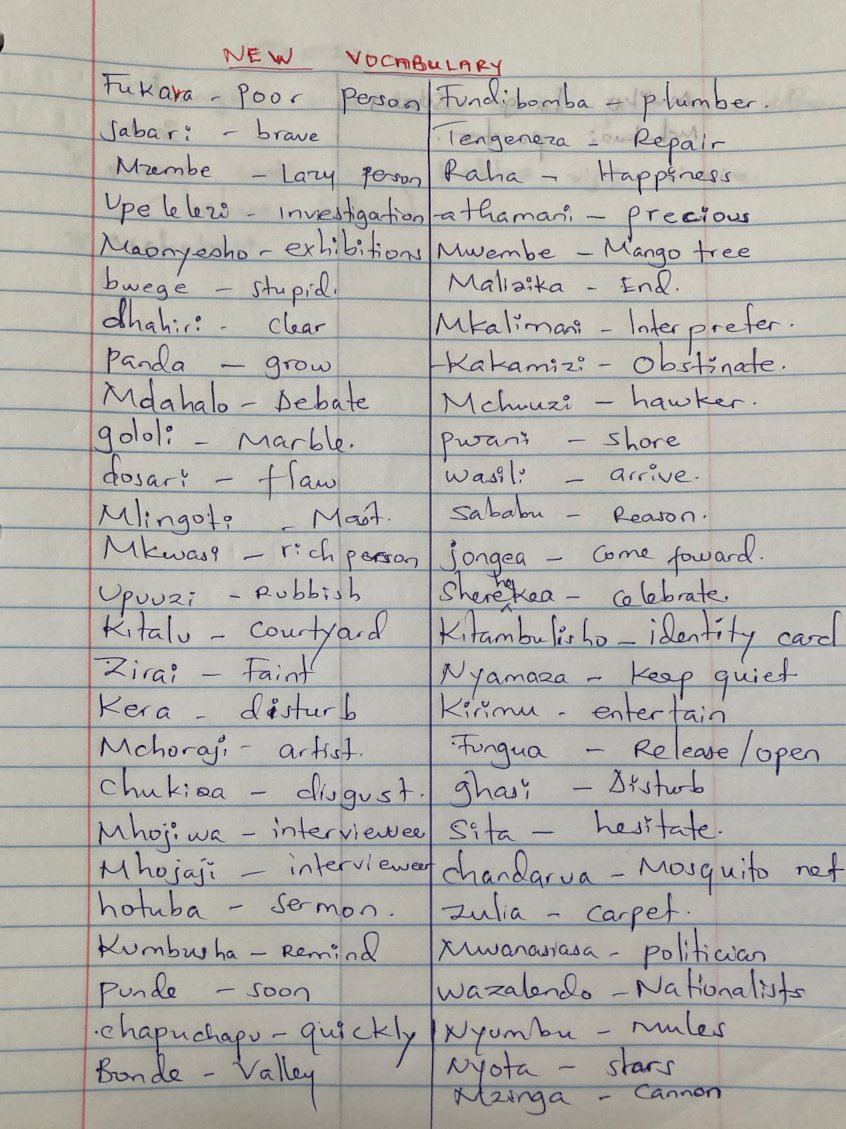 NEW VOCABULARY
Fukara - Poor person
Jabari - brave
Mzembe - Lazy person
Upelelezi - investigation
Maonyesho - exhibitions
bwege - stupid.
dhahiri - clear
Panda - grow
Mdahalo - Debate
gololi - Marble.
dosari - flaw
Mlingoti - Mast.
Mkwasi - rich person
Upuuzi - Rubbish
Kitalu - Courtyard
Zirai - Faint
Kera - disturb
Mchoraji - artist.
chukiza - disgust.
Mhojiwa - interviewee
Mhojaji - interviewer
hotuba - Sermon.
Kumbusha - Remind
punde - soon
chapuchapu - quickly
Bonde - Valley
Fundibomba - plumber.
Tengeneza - Repair
Raha - Happiness
-athamani - precious
Mwembe - Mango tree
Malizika - End.
Mkalimani - Interprefer.
-Kakamizi - Obstinate.
Mchuuzi - hawker.
pwani - shore
wasili - arrive.
Sababu - Reason.
jongea - Come foward.
Sherehekea - celebrate.
Kitambulisho - identity card
Nyamaza - Keep quiet
Kirimu - entertain
Fungua - Release/open
ghasi - Disturb
Sita - hesitate.
chandarua - Mosquito net
zulia - carpet.
Mwanasiasa - politician
wazalendo - Nationalists
Nyumbu - mules
Nyota - stars
Mzinga - Cannon